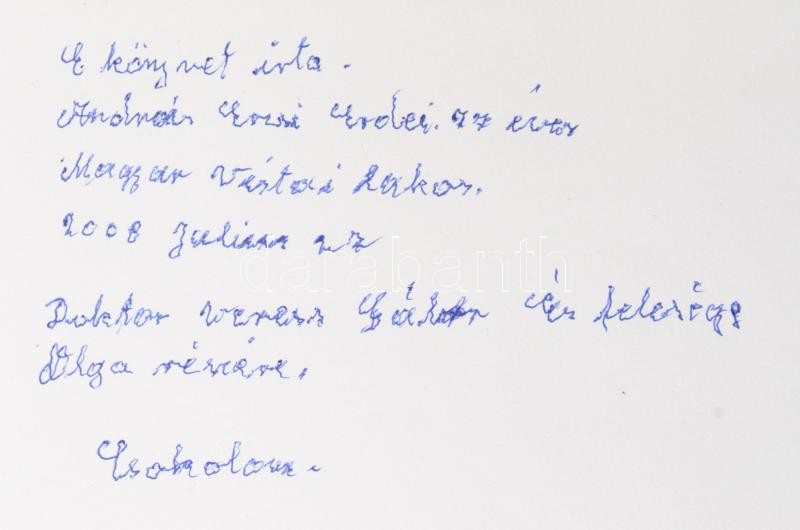 E könyvet irta.
András Erzsi Erdei. 77 éves
Magyar Vistai Lakos.
2008 Julius 27
darabanth
Doktor veress Gábor És felesége
Olga részére.
Csokolom.